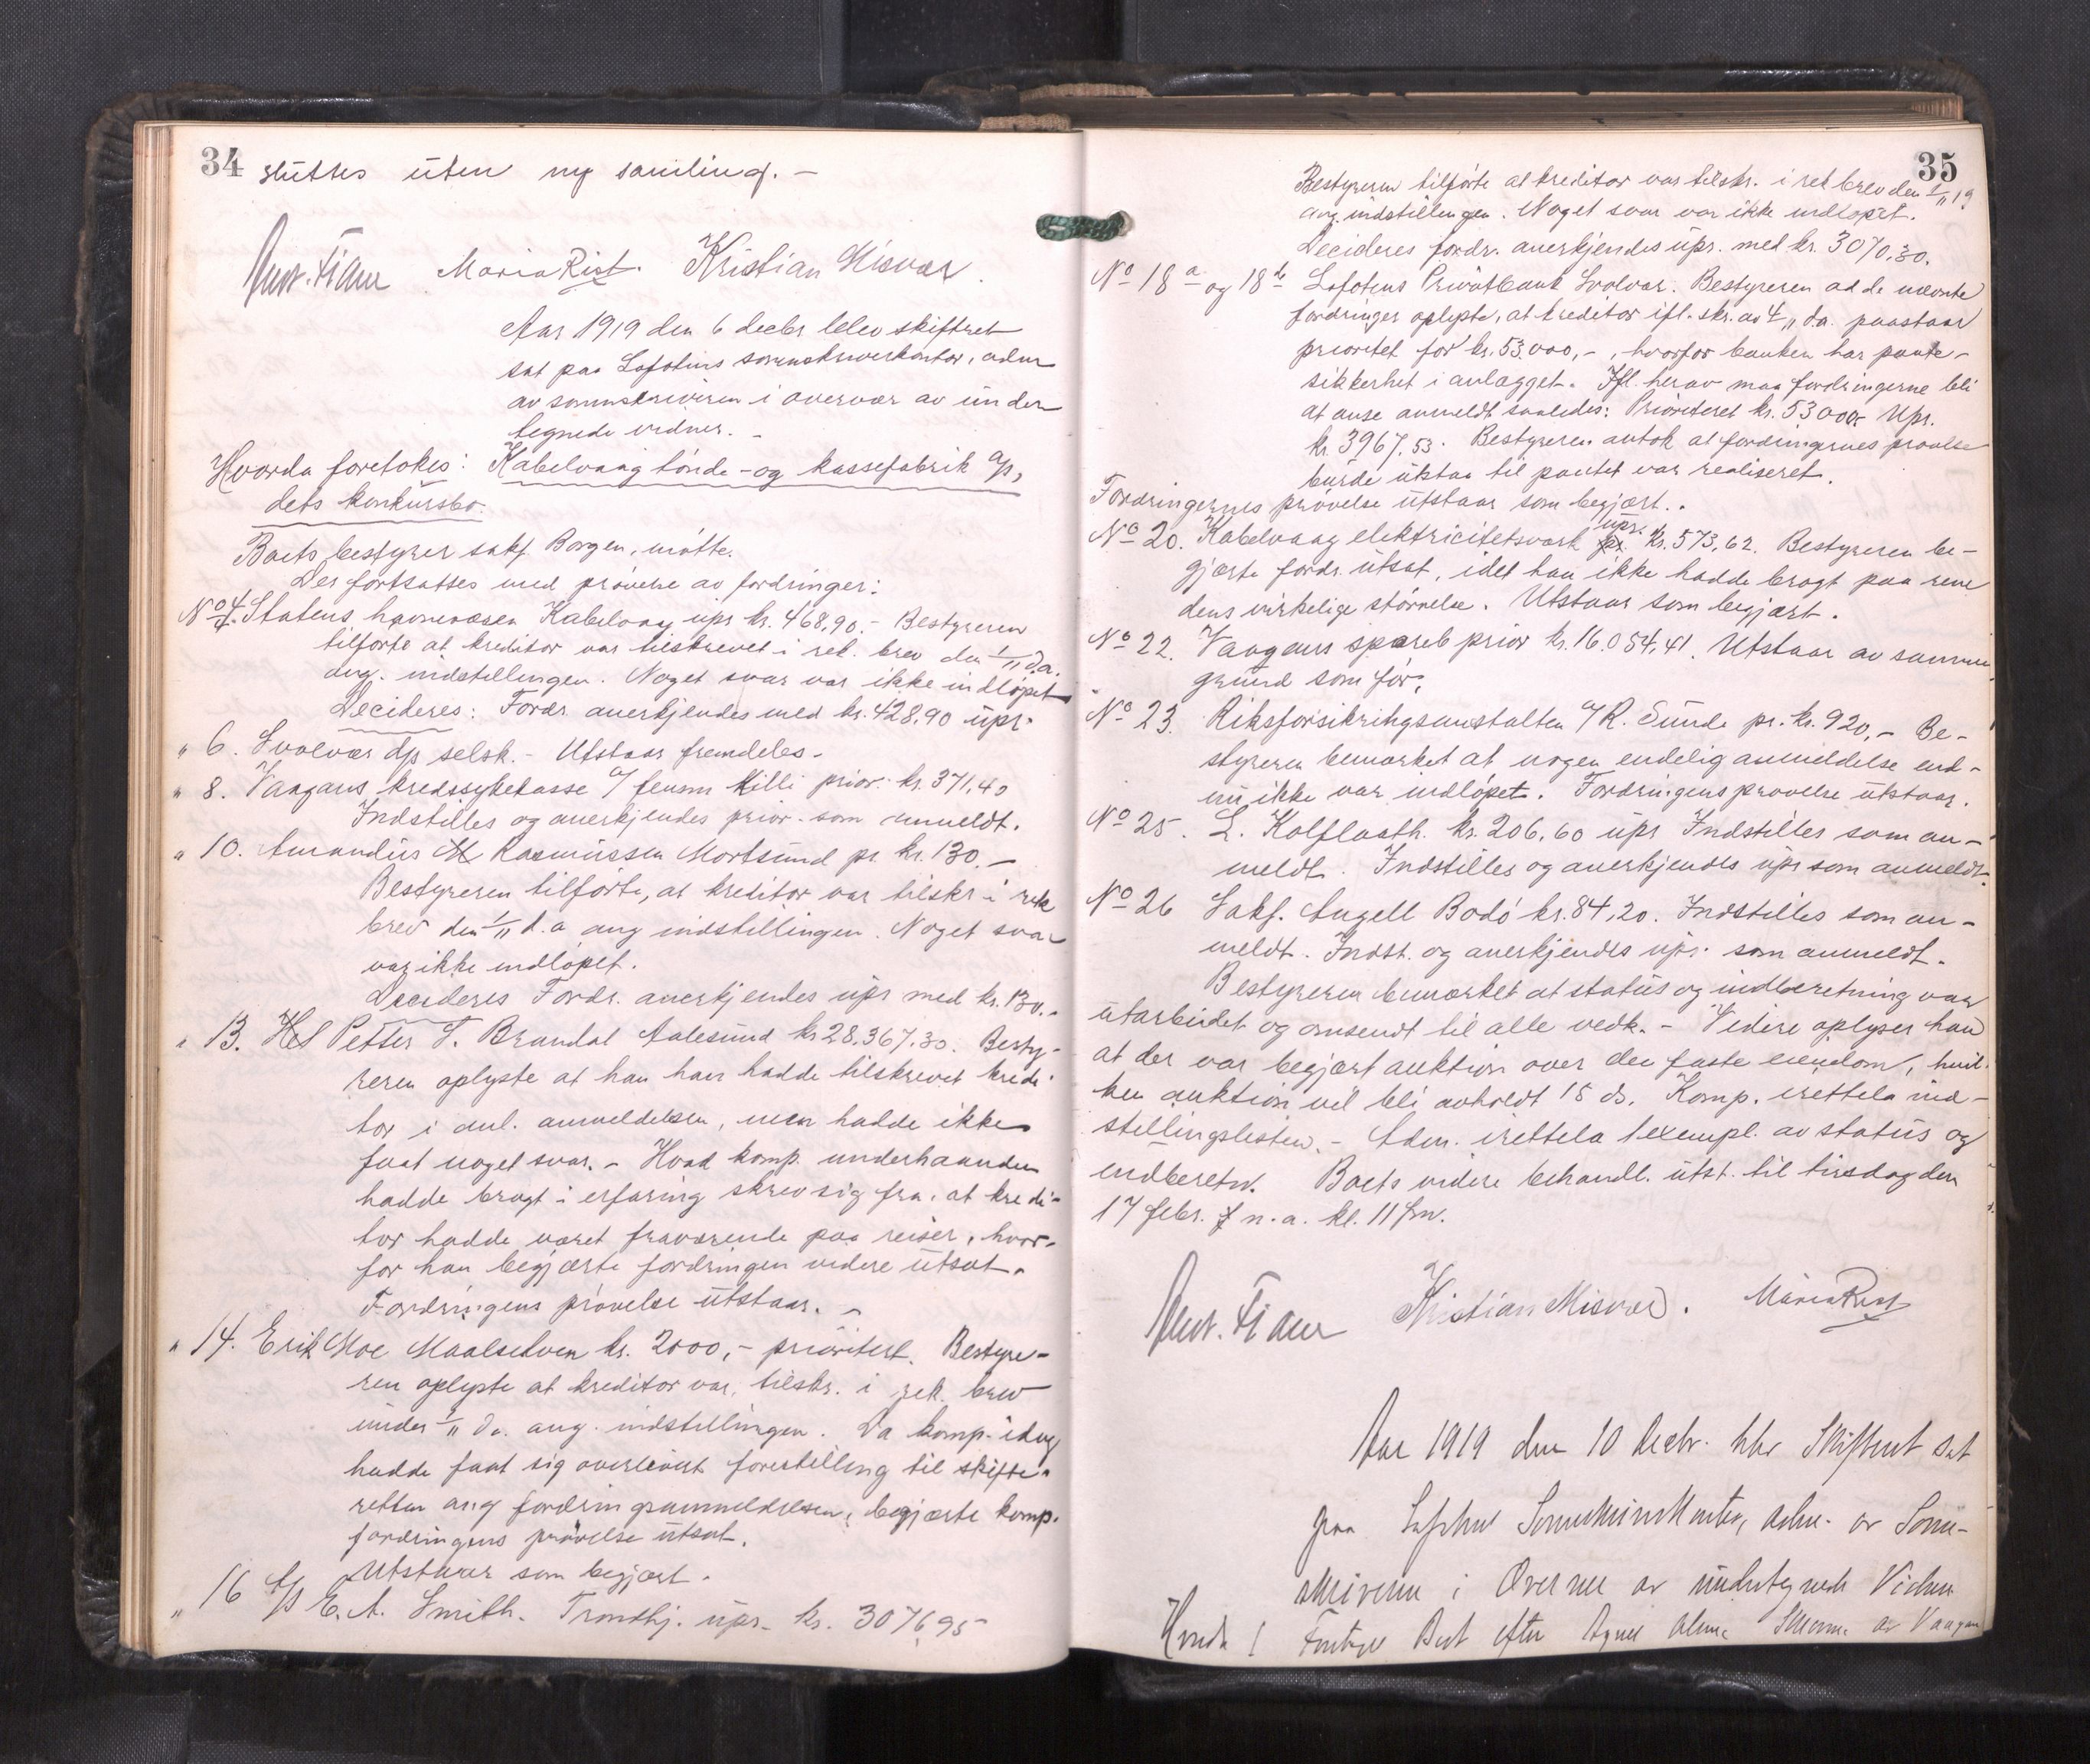 34
sluttes uten ny samling. -
Maria Rist. Kristian Misvær.
Aar 1919 den 6 decbr blev skifteret
sat paa Lofotens sorenskriverkontor, adm
av sorenskriveren i overvær av under
tegnede vidner. -
Hvorda foretokes: Kabelvaag tönde- og kassefabrik A/S,
dets konkursbo.
Boets bestyrer sakf. Borgen, mötte.
Der fortsattes med prövelse av fordringer:
No 4. Statens havnevæsen Kabelvaag upr kr. 468,90. - Bestyreren
tilförte at kreditor var tilskrevet i rek. brev den 1/11 d.a.
ang. indstillingen. Noget svar var ikke indlöpet
Decideres: Fordr. anerkjendes med kr. 428,90 upr.
" 6. Svolvær dp selsk. - Utstaar fremdeles.
" 8. Vaagans kredssykekasse v/ Killi prior. kr. 371,40
Indstilles og anerkjendes prior. som anmeldt.
" 10. Amandus M Rasmussen Mortsund pr. kr. 130. -
Bestyreren tilförte, at kreditor var tilskr i rek
brev den 1/11 d.a ang indstillingen. Noget svar
var ikke indlöpet.
Decideres Fordr. anerkjendes upr med kr. 130. -
" 13. Petter T. Brandal Aalesund kr 28,367.30. Besty-
reren oplyste at han han hadde tilskrevet kredi-
tor i anl. anmeldelsen, men hadde ikke
faat noget svar. - Hvad komp. underhaanden
hadde bragt i erfaring skrev sig fra, at kredi-
tor hadde været fraværende paa reiser, hvor-
for han begjærte fordringen videre utsat.
Fordringens prövelse utstaar. -
" 14. Erik Moe Maalselven kr. 2000,- prioritert. Bestyre-
ren oplyste at kreditor var tilskr. i rek. brev
under 1/11 da. ang. indstillingen. Da komp. idag
hadde faat sig overlevert forestilling til skifte-
retten ang fordringsanmeldelsen, begjærte komp.
fordringens prövelse utsat.
Utstaar som begjært.
" 16 A/S E. A. Smith. Trondhj. upr. kr. 3076,95
35
Bestyreren tilförte at kreditor var tilskr. i rek brev den 1/11 19
ang. indstillingen. Noget svar var ikke indlöpet.
Decideres fordr. anerkjendes upr. med kr. 3070.30.
No 18 a og 18 b Lofotens Privatbank Svolvær. Bestyreren ad de nævnte
fordringer oplyste, at kreditor ifl. skr. av 4/11 d.a. paastaar
prioritet for kr. 53.000,-, hvorfor banken har pante-
sikkerhet i anlægget. Ifl. herav maa fordringerne bli
at anse anmeldt saaledes: Prioriteret kr. 53000,- Upr.
kr. 3967,53. Bestyreren antok at fordringernes prövelse
burde utstaa til pantet var realiseret.
Fordringernes prövelse utstaar som begjært. -
No 20. Kabelvaag elektricitetsverk pr. upr. kr. 573,62. Bestyreren be-
gjærte fordr. utsat, idet han ikke hadde bragt paa rene
dens virkelige störrelse. Utstaar som begjært.
No 22. Vaagans spareb prior kr. 16.054,41. Utstaar av samme
grund som för.
No 23. Riksforsikringsanstalten v/ R. Sunde pr. kr. 920,- Be-
styreren bemerket at nogen endelig anmeldelse end-
nu ikke var indlöpet. Fordringens prövelse utstaar.
No 25. L. Kolflaath. kr. 206,60 upr Indstilles som an-
meldt. Indstilles og anerkjendes upr som anmeldt.
No 26 Sakf. Angell Bodö kr. 84,20. Indstilles som an-
meldt. Indst. og anerkjendes upr. som anmeldt.
Bestyreren bemærket at status og indberetning var
utarbeidet og omsendt til alle vedk. - Videre oplyser han
at der var begjært auktion over den faste eiendom, hvil-
ken auktion vil bli avholdt 15 ds. Komp. irettela ind-
stillingslisten. - Adm. irettela 1 exempl. av status og
indberetn. Boets videre behandl. utst. til tirsdag den
17 febr. f n.a. kl. 11 fm.
Kristian Misvær. Maria Rist
Aar 1919 den 10 Decbr. blev Skifteret sat
paa Lofotens Sorenskriverkontor, adm. av Soren-
skriveren i Overvær av undertegnede Vidner
Hvorda! Foretoges Boet efter av Vaagan